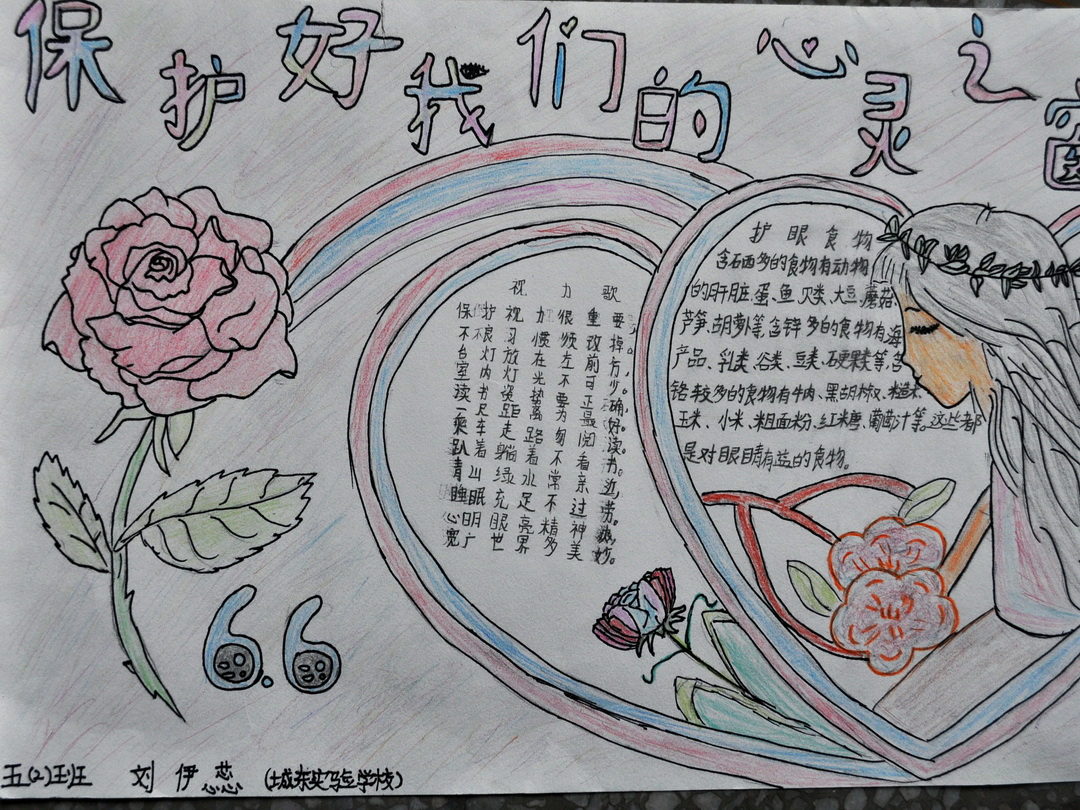 保护好我们的心灵之窗
视力歌
保护视力很重要,
不良习惯须改掉。
台灯放在左前方,
室内灯光不可少。
读书姿势要正确,
一尺距离为最好。
乘车走路勿阅读,
趴着躺着不看书。
青山绿水常亲边,
睡眠充足不过劳。
心明眼亮精神
宽广世界多美妙。
护眼食物
含硒多的食物有动物
的肝脏、蛋、鱼、贝类、大豆、蘑菇、
芦笋、胡萝卜等,含锌多的食物有海
产品、乳类、谷类、豆类、硬果类等,含
铬较多的食物有牛肉、黑胡椒、糙米、
玉米、小米、粗面粉、红糖、葡萄汁等。这些都
是对眼睛有益的食物。
6.6
五(2)班 刘伊蕊 (城东实验学校)